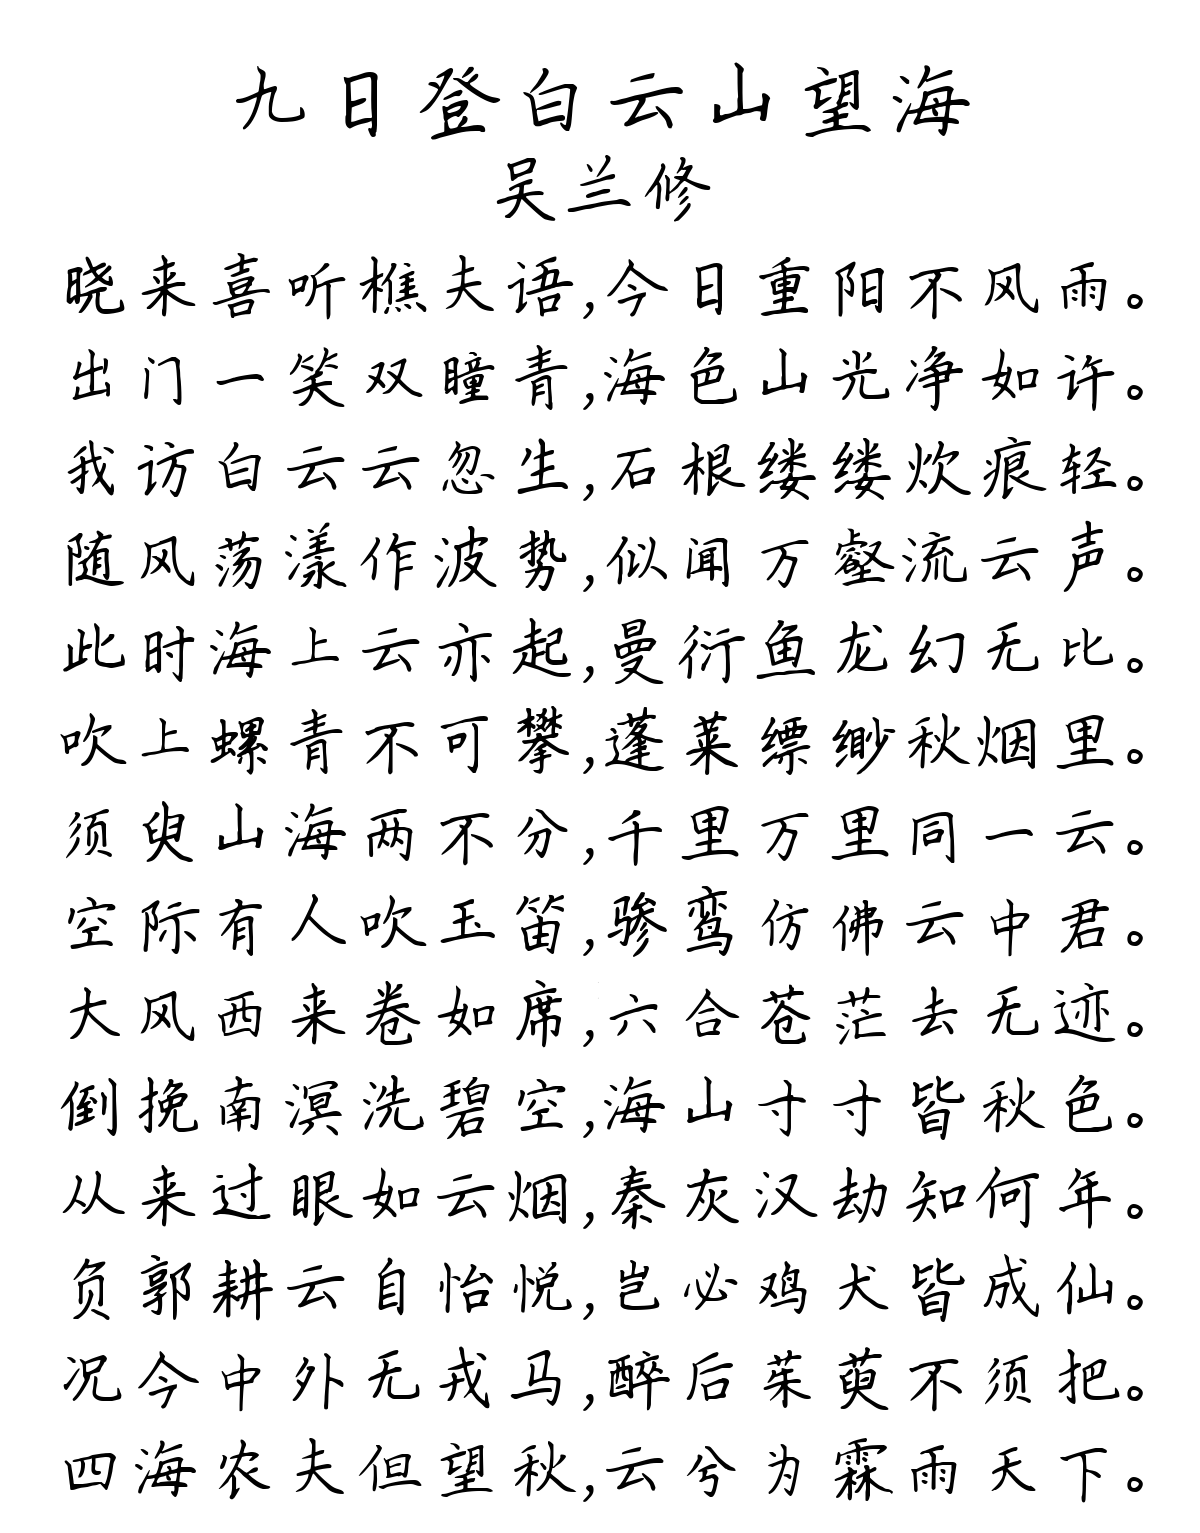 九日登白云山望海
吴兰修
晓来喜听樵夫语,今日重阳不风雨。
出门一笑双瞳青,海色山光净如许。
我访白云云忽生,石根缕缕炊痕轻。
随风荡漾作波势,似闻万壑流云声。
此时海上云亦起,曼衍鱼龙幻无比。
吹上螺青不可攀,蓬莱缥缈秋烟里。
须臾山海两不分,千里万里同一云。
空际有人吹玉笛,骖鸾仿佛云中君。
大风西来卷如席,六合苍茫去无迹。
倒挽南溟洗碧空,海山寸寸皆秋色。
从来过眼如云烟,秦灰汉劫知何年。
负郭耕云自怡悦,岂必鸡犬皆成仙。
况今中外无戎马,醉后茱萸不须把。
四海农夫但望秋,云兮为霖雨天下。